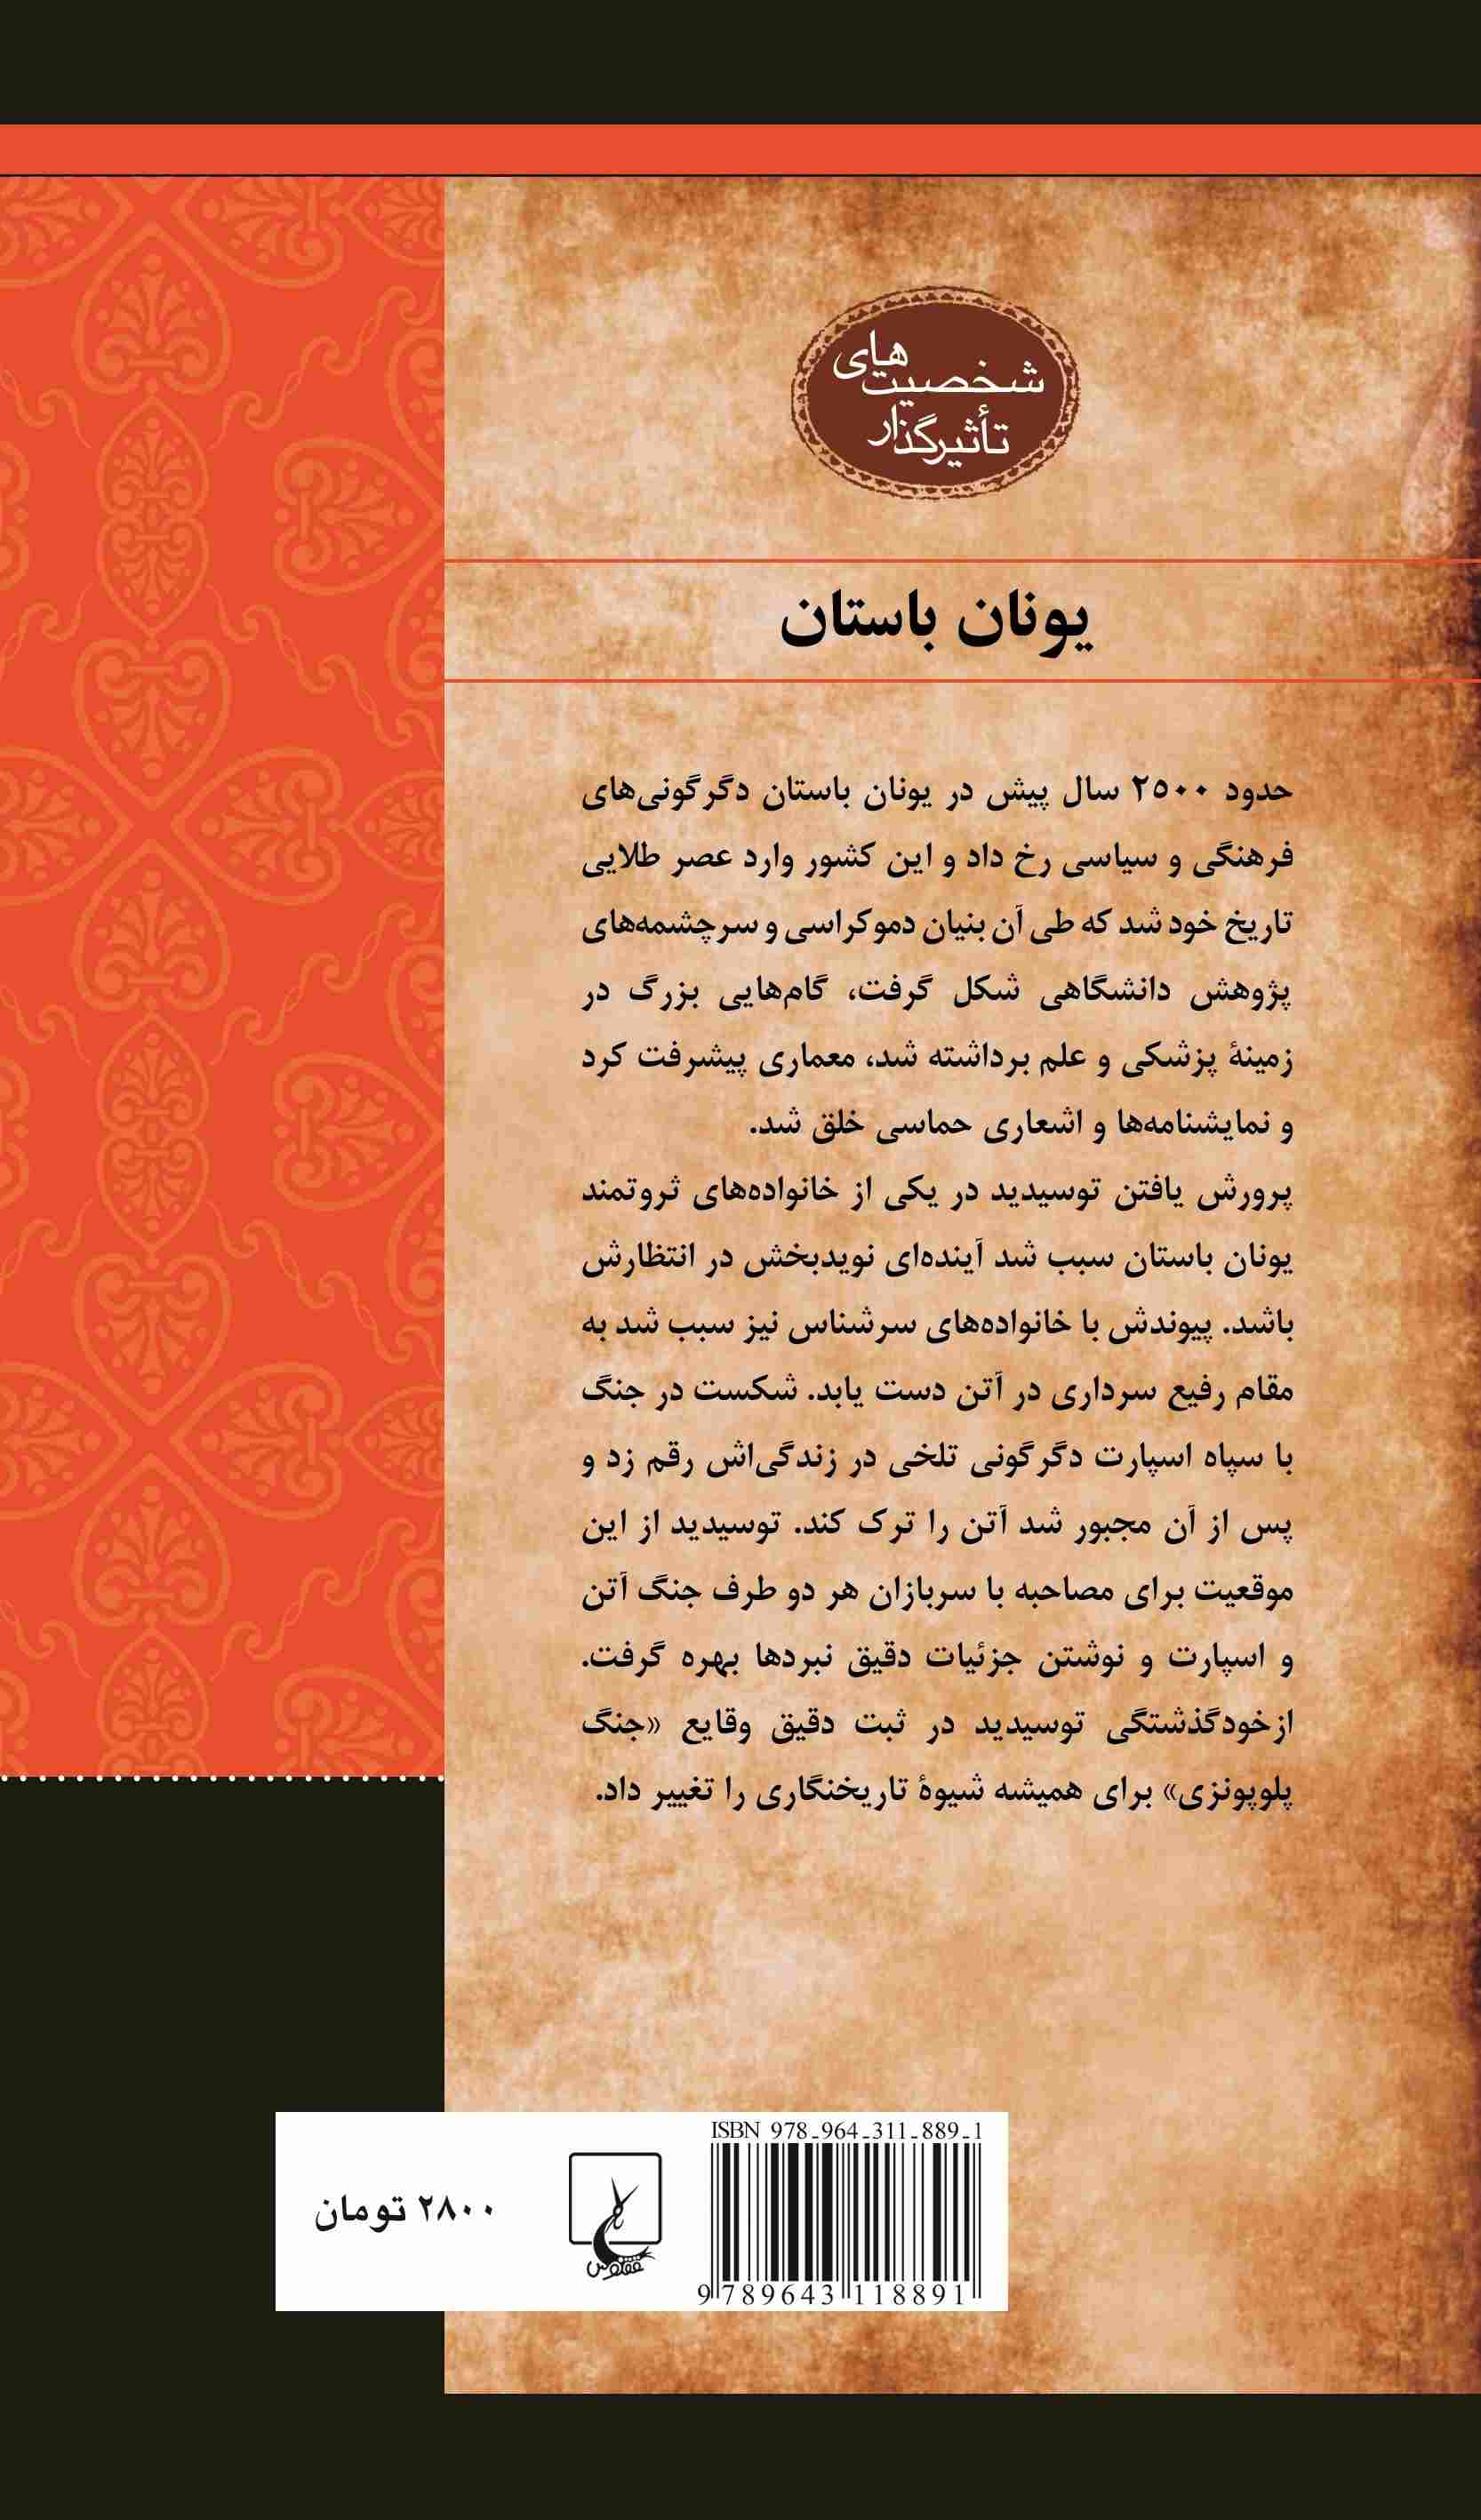 شخصیت‌های
تأثیرگذار
یونان باستان
حدود ۲۵۰۰ سال پیش در یونان باستان دگرگونی‌های
فرهنگی و سیاسی رخ داد و این کشور وارد عصر طلایی
تاریخ خود شد که طی آن بنیان دموکراسی و سرچشمه‌های
پژوهش دانشگاهی شکل گرفت، گام‌هایی بزرگ در
زمینهٔ پزشکی و علم برداشته شد، معماری پیشرفت کرد
و نمایشنامه‌ها و اشعاری حماسی خلق شد.
پرورش یافتن توسیدید در یکی از خانواده‌های ثروتمند
یونان باستان سبب شد آینده‌ای نویدبخش در انتظارش
باشد. پیوندش با خانواده‌های سرشناس نیز سبب شد به
مقام رفیع سرداری در آتن دست یابد. شکست در جنگ
با سپاه اسپارت دگرگونی تلخی در زندگی‌اش رقم زد و
پس از آن مجبور شد آتن را ترک کند. توسیدید از این
موقعیت برای مصاحبه با سربازان هر دو طرف جنگ آتن
و اسپارت و نوشتن جزئیات دقیق نبردها بهره گرفت.
ازخودگذشتگی توسیدید در ثبت دقیق وقایع «جنگ
پلوپونزی» برای همیشه شیوهٔ تاریخنگاری را تغییر داد.
ISBN 978-964-311-889-1
9 789643 118891
ققنوس
۲۸۰۰ تومان